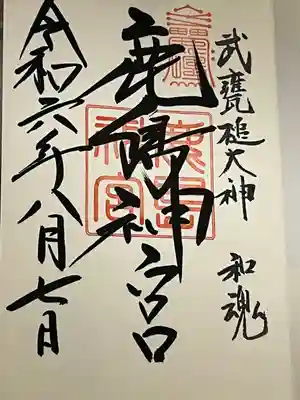 武甕槌大神
和魂
鹿島神宮
令和六年八月七日